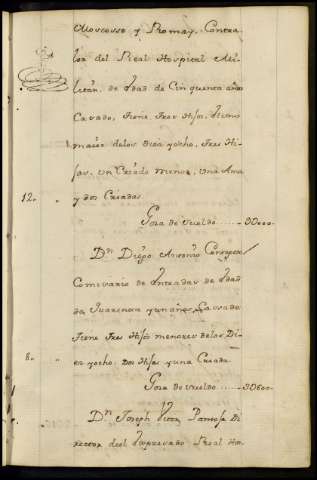 Moscosso y Romay, Contra
lor del Real Hospital Mi-
litar, de edad de Cinquenta años
Casado, tiene tres Hijos, uno
maior de los Diez y ocho, tres Hi-
jas, un Criado menor, una Ama
12. y dos Criadas.
Goza de sueldo
Dn. Diego Antonio
Comisario de Entradas de edad
de Quarenta y un años Casado
tiene tres Hijos menores de los Di-
8. ez y ocho, dos Hijas y una Criada
Goza de sueldo
Dn. Joseph Pantoja Di
rector del Real